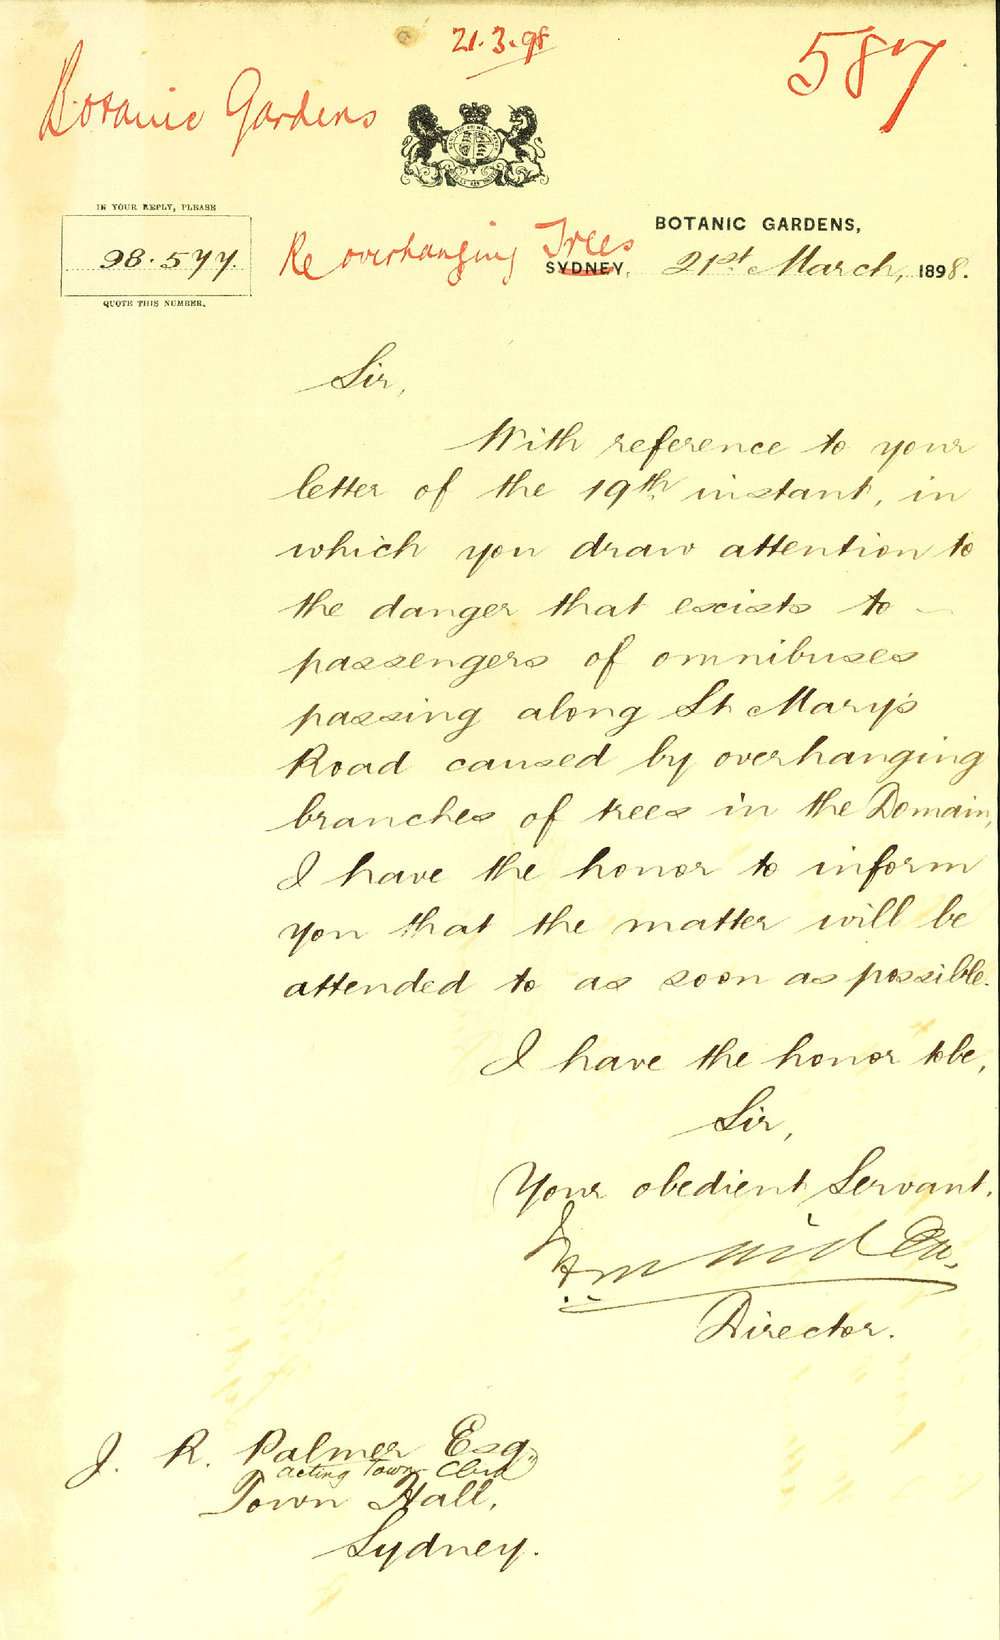 21.3.98
587
Botanic Gardens
IN YOUR REPLY, PLEASE
98.577.
QUOTE THIS NUMBER.
Re overhanging Trees
BOTANIC GARDENS,
SYDNEY, 21st March, 1898.
Sir,
With reference to your
letter of the 19th instant, in
which you draw attention to
the danger that exists to
passengers of omnibuses
passing along St Mary's
Road caused by overhanging
branches of trees in the Domain,
I have the honor to inform
you that the matter will be
attended to as soon as possible.
I have the honor to be,
Sir,
Your obedient Servant,
Director.
J. R. Palmer Esq.,
Acting Town Clerk
Town Hall,
Sydney.